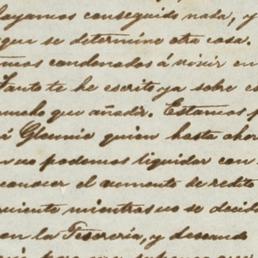 hayamos conseguido nada, y
que se determine otra cosa.
mos condenados á vivir en
Tanto te he escrito ya sobre es
mucho que añadir. Estamos p
á Glennie quien hasta ahor
no podemos liquidar con
conocer el aumento de redito
mientras no se decid
en la Tesorería, y deseando